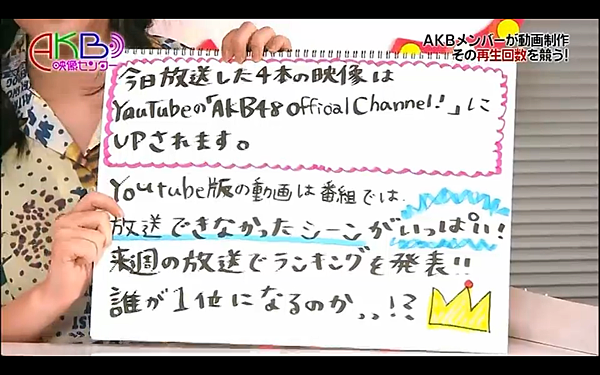 AKB
映像センター
AKBメンバーが動画制作
その再生回数を競う!
今日放送した4本の映像は
YouTubeの「AKB48 Official Channel!」に
UPされます。
Youtube版の動画は番組では
放送できなかったシーンがいっぱい!
来週の放送でランキングを発表!!
誰が1位になるのか、、!?